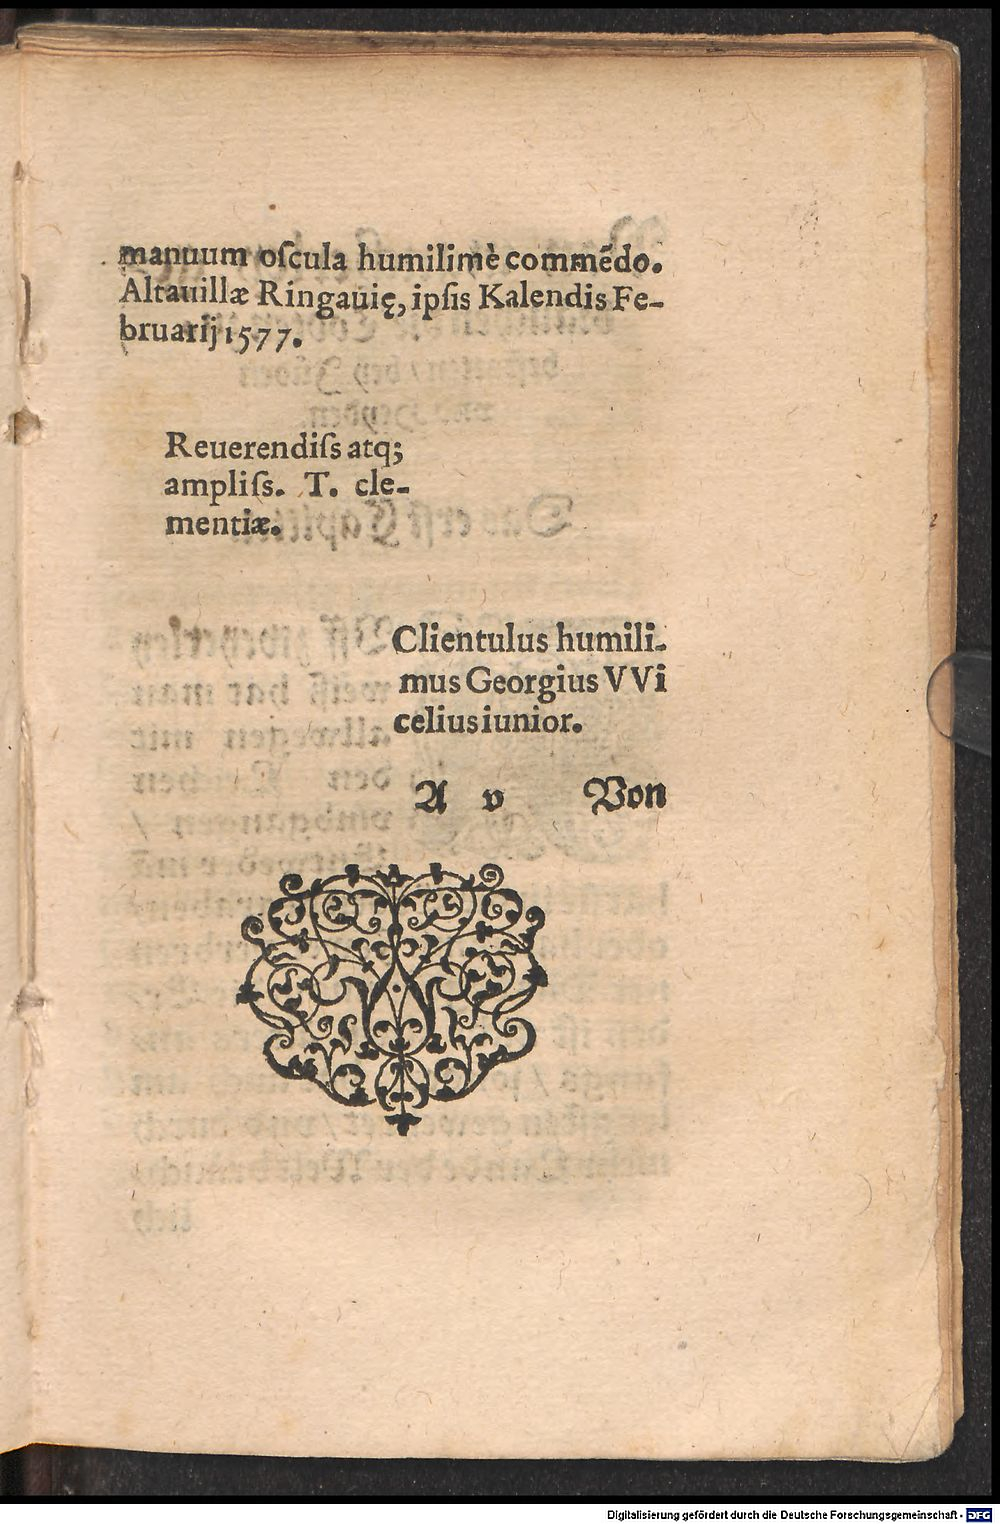 manuum oſcula humilimè commẽdo.
Altauillæ Ringauię, ipſis Kalendis Fe-
bruarij 1577.
Reuerendiſs atq;
ampliſs. T. cle-
mentiæ.
Clientulus humili-
mus Georgius VVi
celius iunior.
A v Von
Digitalisierung gefördert durch die Deutsche Forschungsgemeinschaft - DFG